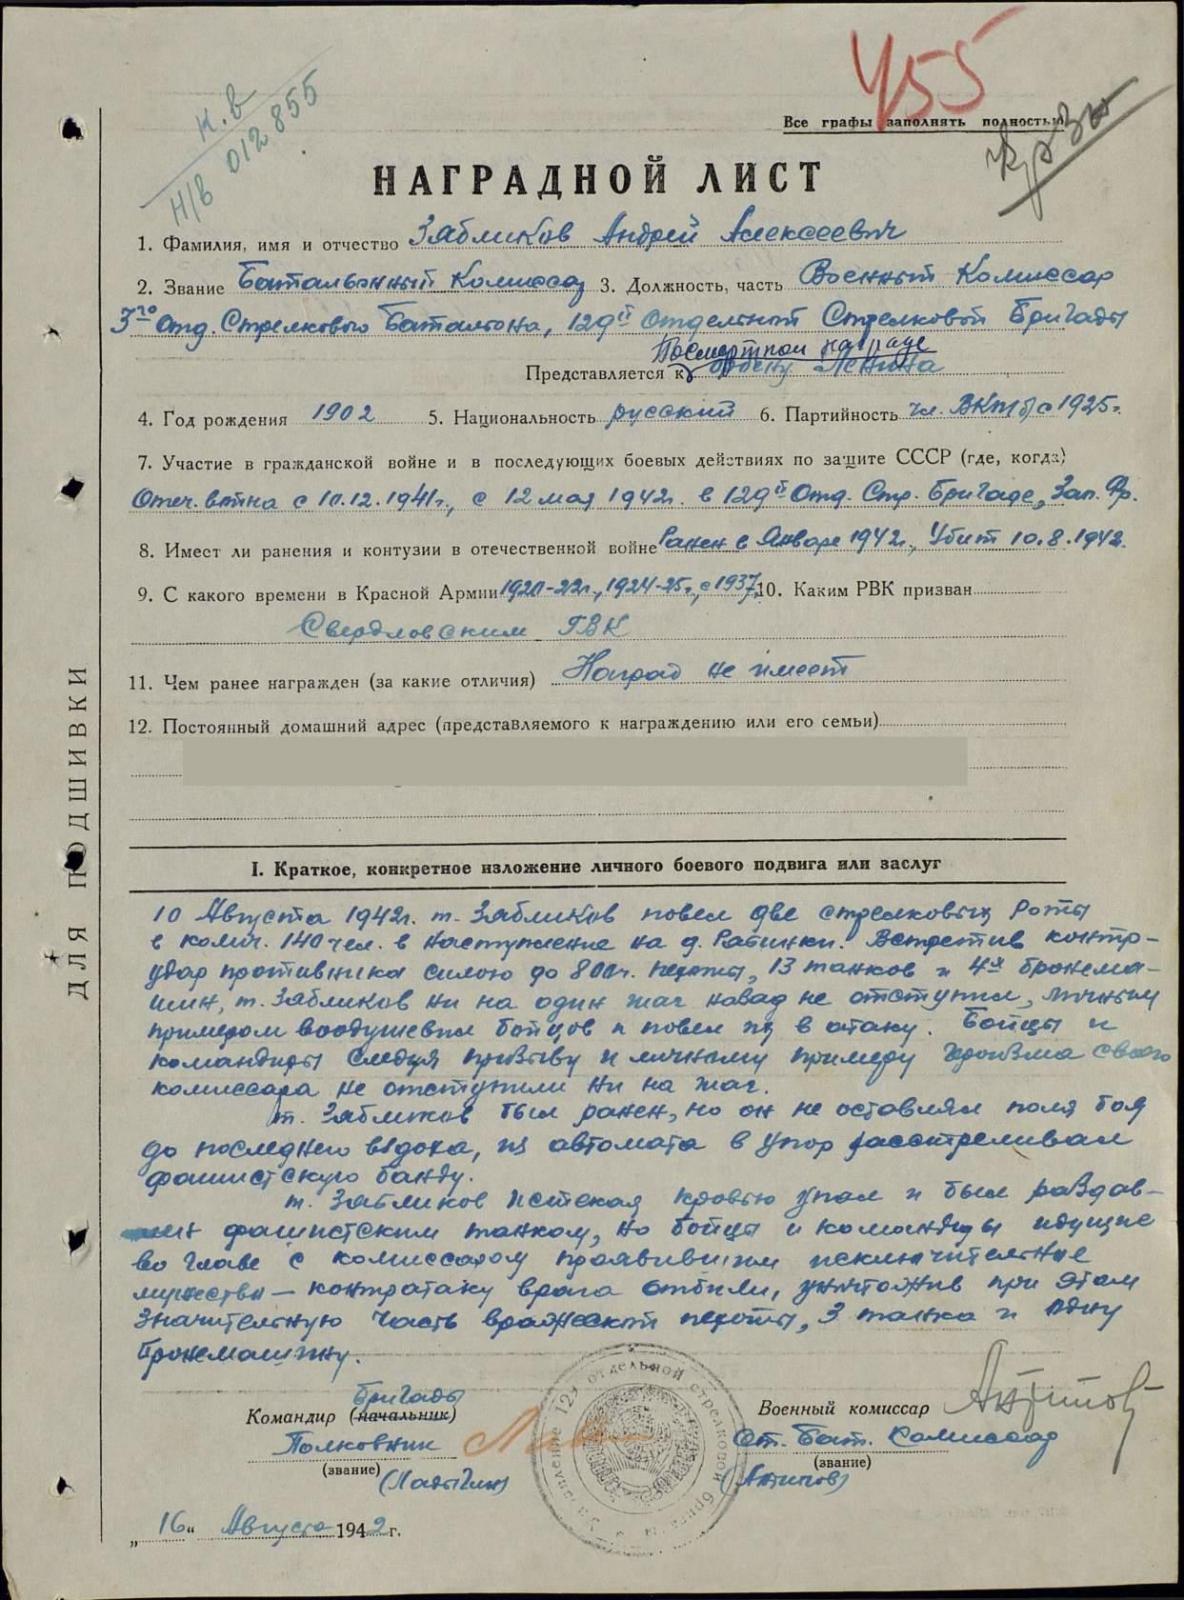 455
н.в
Н/В 012855
Все графы заполнять полностью
НАГРАДНОЙ ЛИСТ
1. Фамилия, имя и отчество Зябликов Андрей Алексеевич
2. Звание Батальонный Комиссар 3. Должность, часть Военный Комиссар
3го Отд. Стрелкового Баталиона, 129й Отдельной Стрелковой Бригады
Посмертной награде
Представляется к ордену Ленина
4. Год рождения 1902 5. Национальность русский 6. Партийность чл. ВКП(б) с 1925г.
7. Участие в гражданской войне и в последующих боевых действиях по защите СССР (где, когда)
Отеч. война с 10.12.1941г., с 12 мая 1942г. в 129й Отд. Стр. Бригаде, Зап. Фр.
8. Имеет ли ранения и контузии в отечественной войне Ранен в Январе 1942г., Убит 10.8.1942.
9. С какого времени в Красной Армии 1920-22г., 1924-25г., с 1937г. 10. Каким РВК призван
Свердловским ГВК
11. Чем ранее награжден (за какие отличия) Наград не имеет
12. Постоянный домашний адрес (представляемого к награждению или его семьи)
ДЛЯ ПОДШИВКИ
I. Краткое, конкретное изложение личного боевого подвига или заслуг
10 Августа 1942г. т. Зябликов повел две стрелковых роты
в колич. 140 чел. в наступление на д. Рабинки. Встретив контр-
удар противника силою до 800ч. пехоты, 13 танков и 4х бронема-
шин, т. Зябликов ни на один шаг назад не отступил, личным
примером воодушевил бойцов и повел их в атаку. Бойцы и
командиры следуя призыву и личному примеру героизма своего
комиссара не отступили ни на шаг.
т. Зябликов был ранен, но он не оставлял поля боя
до последнего вздоха, из автомата в упор расстреливал
фашистскую банду.
т. Зябликов истекая кровью упал и был раздав-
лен фашистским танком, но бойцы и командиры идущие
во главе с комиссаром проявившим исключительное
мужество — контратаку врага отбили, уничтожив при этом
значительную часть вражеской пехоты, 3 танка и одну
бронемашину.
Бригады
Командир (начальник) Военный комиссар Антипов
Полковник Ст. Бат. Комиссар
(звание) (звание)
(Ладыгин) (Антипов)
129 отдельной стрелковой бригады
„16“ Августа 1942 г.